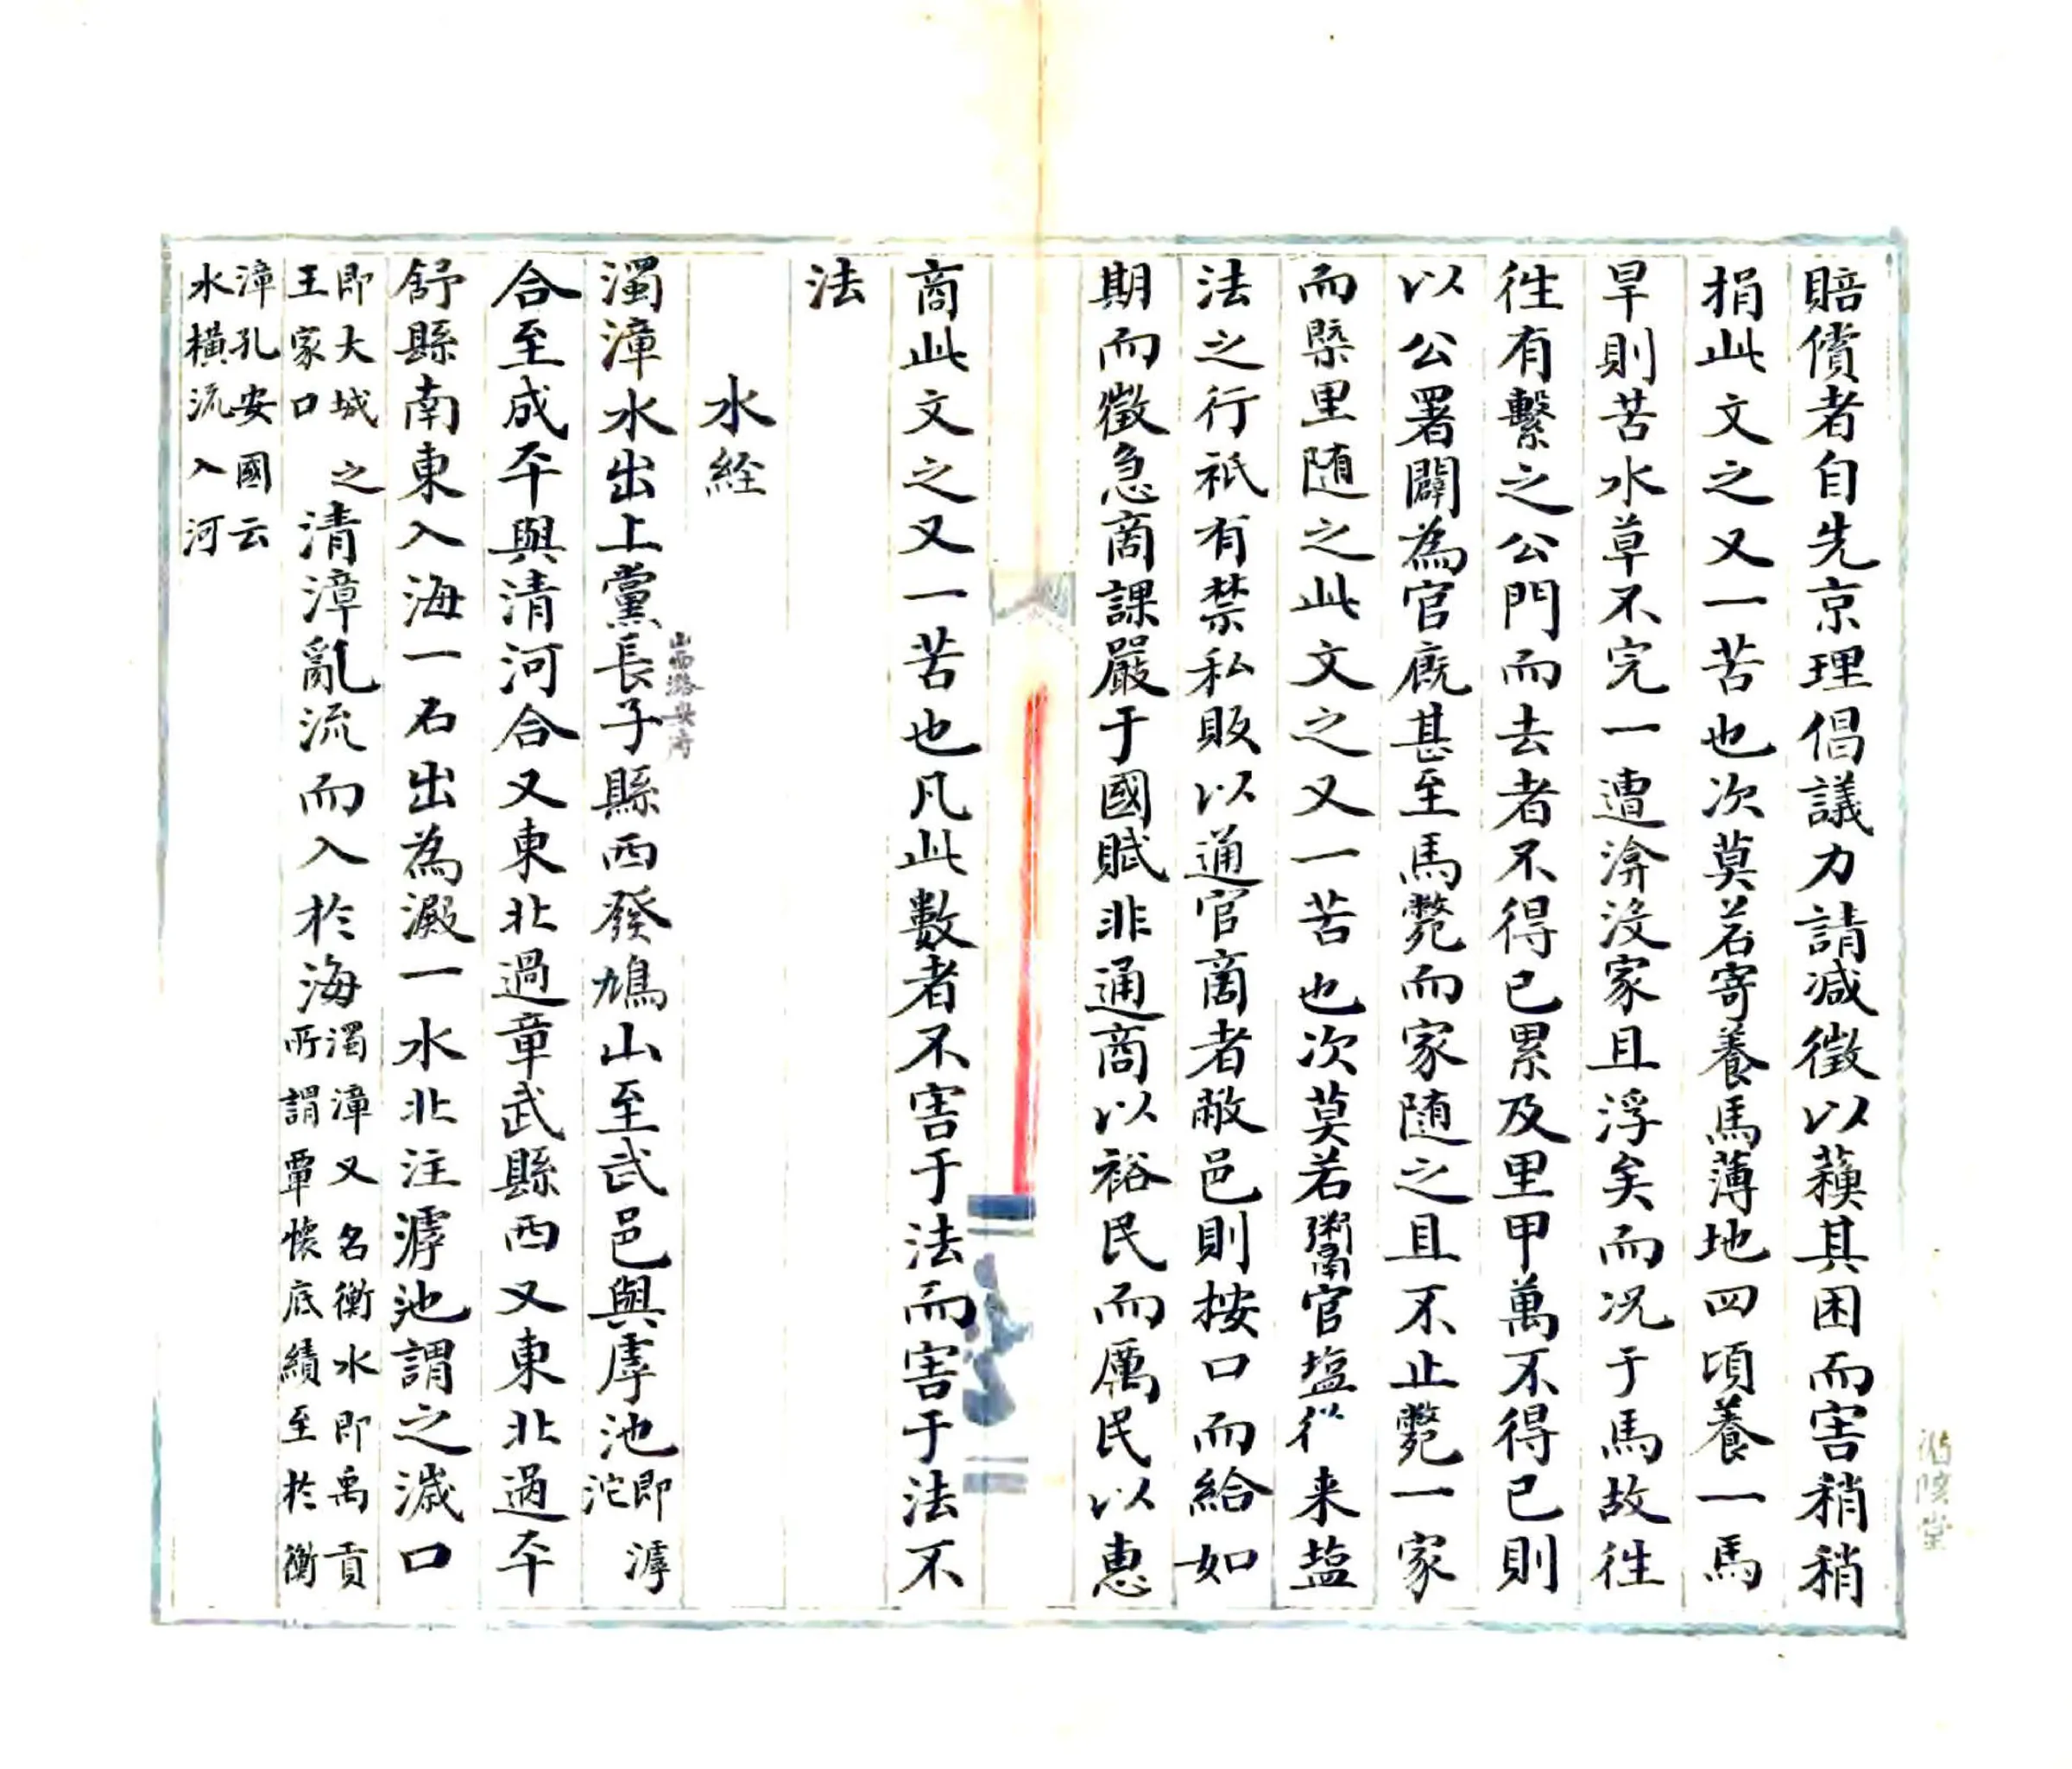 賠償者自先京理倡議力請减徵以蘓其困而害稍稍
捐此文之又一苦也次莫若寄養馬薄地四頃養一馬
旱則苦水草不完一遭渰没家且浮矣而况于馬故徃
徃有繫之公門而去者不得已累及里甲萬不得已則
以公署闢為官廐甚至馬斃而家随之且不止斃一家
而槩里随之此文之又一苦也次莫若鬻官塩従来塩
法之行祇有禁私販以通官商者敝邑則按口而給如
期而徵急商課嚴于國賦非通商以裕民而厲民以惠
商此文之又一苦也凡此數者不害于法而害于法不
法
水經
濁漳水出上黨長子縣西發鳩山至武邑與虖池即滹沱
山西潞安府
合至成平與清河合又東北過章武縣西又東北過平
舒縣南東入海一名出為澱一水北注滹池謂之濊口
即大城之王家口清漳亂流而入於海濁漳又名衡水即禹貢所謂覃懷底績至於衡
漳孔安國云水橫流入河